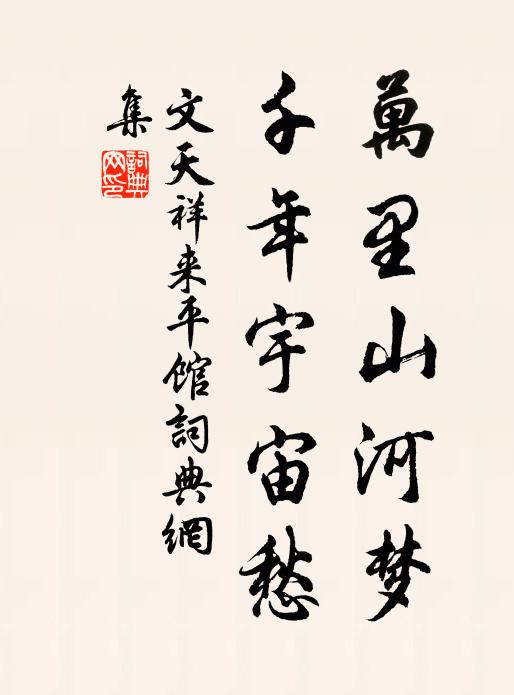 萬里山河梦
千年宇宙愁
文天祥来平馆詞典網
集
詞典
网印